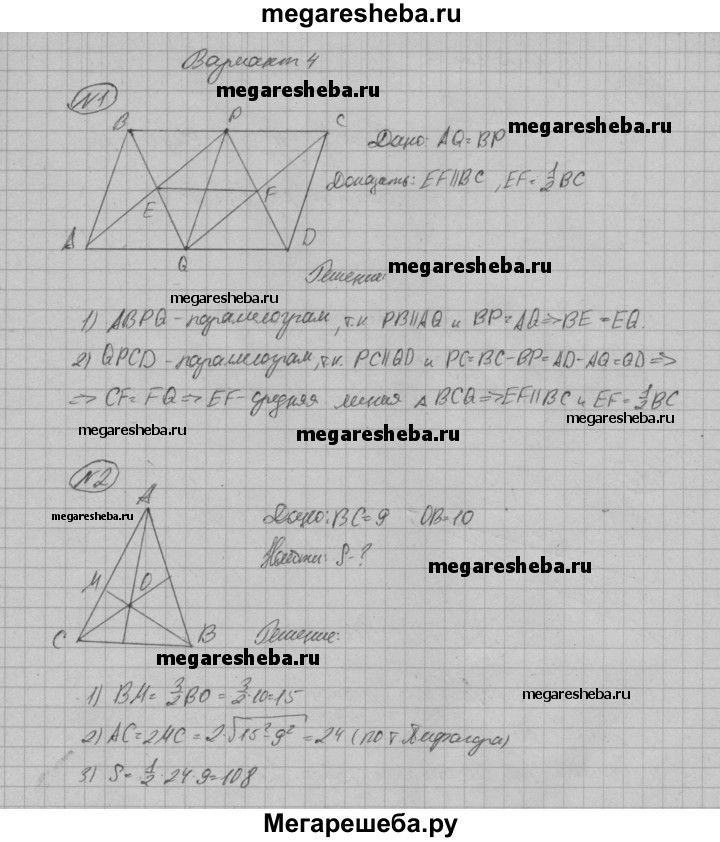 megaresheba.ru
Вариант 4
megaresheba.ru
№1
B P C
megaresheba.ru
Дано: AQ=BP
Доказать: EF||BC , EF=1/2 BC
E F
A Q D
Решение:
megaresheba.ru
megaresheba.ru
1) ABPQ - параллелограм, т.к PB||AQ и BP=AQ⇒BE=EQ.
2) QPCD - параллелограм, т.к. PC||QD и PC=BC-BP=AD-AQ=QD⇒
⇒ CF=FQ⇒EF-средняя линия △ BCQ⇒EF||BC и EF=1/2 BC
megaresheba.ru
megaresheba.ru
megaresheba.ru
№2
A
megaresheba.ru
Дано: BC=9 OB=10
Найти: S-?
megaresheba.ru
M O
C B
Решение:
megaresheba.ru
megaresheba.ru
1) BM=3/2 BO=3/2·10=15
2) AC=2MC=2·√15²-9²=24 (по т. Пифагора)
3) S=1/2·24·9=108
Мегарешеба.ру